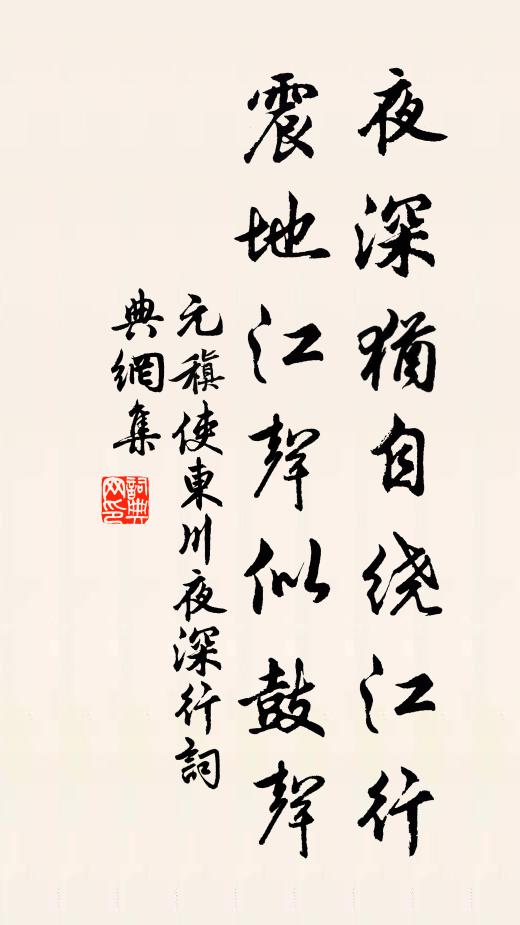 夜深猶自绕江行
震地江聲似鼓聲
元稹使東川夜深行詞
典網集
詞典網印